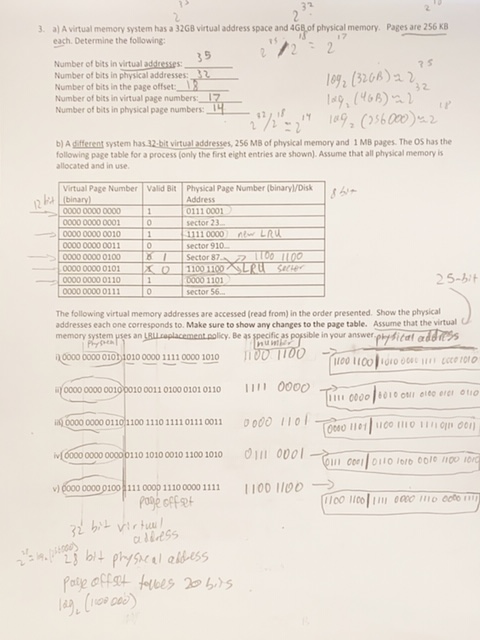 3. a) A virtual memory system has a 32GB virtual address space and 4GB of physical memory. Pages are 256 KB
each. Determine the following:
Number of bits in virtual addresses: 35
Number of bits in physical addresses: 32
Number of bits in the page offset: 18
Number of bits in virtual page numbers: 17
Number of bits in physical page numbers: 14
2^35 / 2^18 = 2^17
log2 (32GB) = 2^35
log2 (4GB) = 2^32
log2 (256000) = 2^18
2^32 / 2^18 = 2^14
b) A different system has 32-bit virtual addresses, 256 MB of physical memory and 1 MB pages. The OS has the
following page table for a process (only the first eight entries are shown). Assume that all physical memory is
allocated and in use.
12 bit
8 bit
Virtual Page Number (binary) Valid Bit Physical Page Number (binary)/Disk Address
0000 0000 0000 1 0111 0001
0000 0000 0001 0 sector 23...
0000 0000 0010 1 1111 0000 new LRU
0000 0000 0011 0 sector 910...
0000 0000 0100 0 1 Sector 87... 1100 1100
0000 0000 0101 1 0 1100 1100 LRU sector
0000 0000 0110 1 0000 1101
0000 0000 0111 0 sector 56...
28-bit
The following virtual memory addresses are accessed (read from) in the order presented. Show the physical
addresses each one corresponds to. Make sure to show any changes to the page table. Assume that the virtual
memory system uses an LRU replacement policy. Be as specific as possible in your answer.
physical
number
physical address
i) 0000 0000 0101 1010 0000 1111 0000 1010 1100 1100 1100 1100 1010 0000 1111 0000 1010
ii) 0000 0000 0010 0010 0011 0100 0101 0110 1111 0000 1111 0000 0010 0011 0100 0101 0110
iii) 0000 0000 0110 1100 1110 1111 0111 0011 0000 1101 0000 1101 1100 1110 1111 0111 0011
iv) 0000 0000 0000 0110 1010 0010 1100 1010 0111 0001 0111 0001 0110 1010 0010 1100 1010
v) 0000 0000 0100 1111 0000 1110 0000 1111 1100 1100 1100 1100 1111 0000 1110 0000 1111
page offset
32 bit virtual
address
28 bit physical address
page offset takes 20 bits